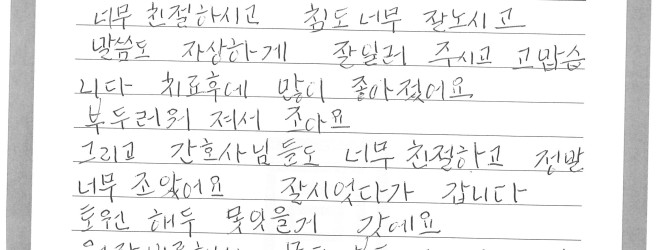 너무 친절하시고 침도 너무 잘노시고
말씀도 자상하게 잘일러 주시고 고맙습
니다 치료후에 많이 좋아졌어요
부두러워 져서 조아요
그리고 간호사님들도 너무 친절하고 정말
너무 조았어요 잘시었다가 갑니다
토원 해두 못잊을게 갓에요